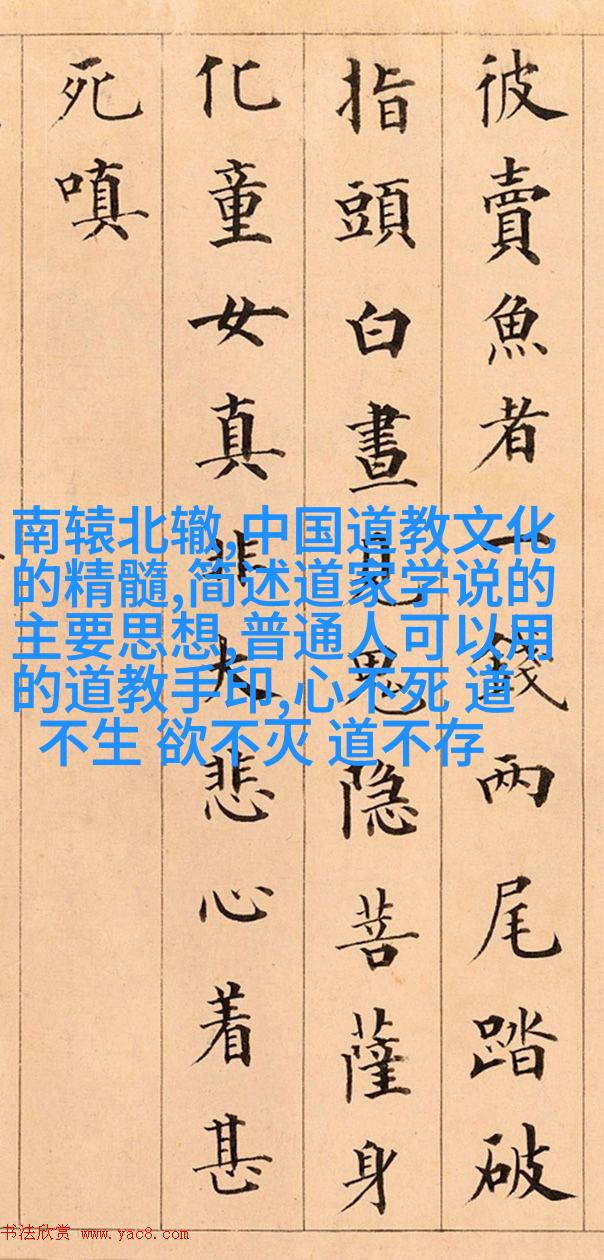 彼賣魚者一錢两尾踏破
指頭白晝見鬼隐菩薩身
化童女真非大悲心着甚
死嗔
南辕北辙,中国道教文化
的精髓,简述道家学说的
主要思想,普通人可以用
的道教手印,心不死 道
不生 欲不灭 道不存
书法欣赏 www.yac8.com